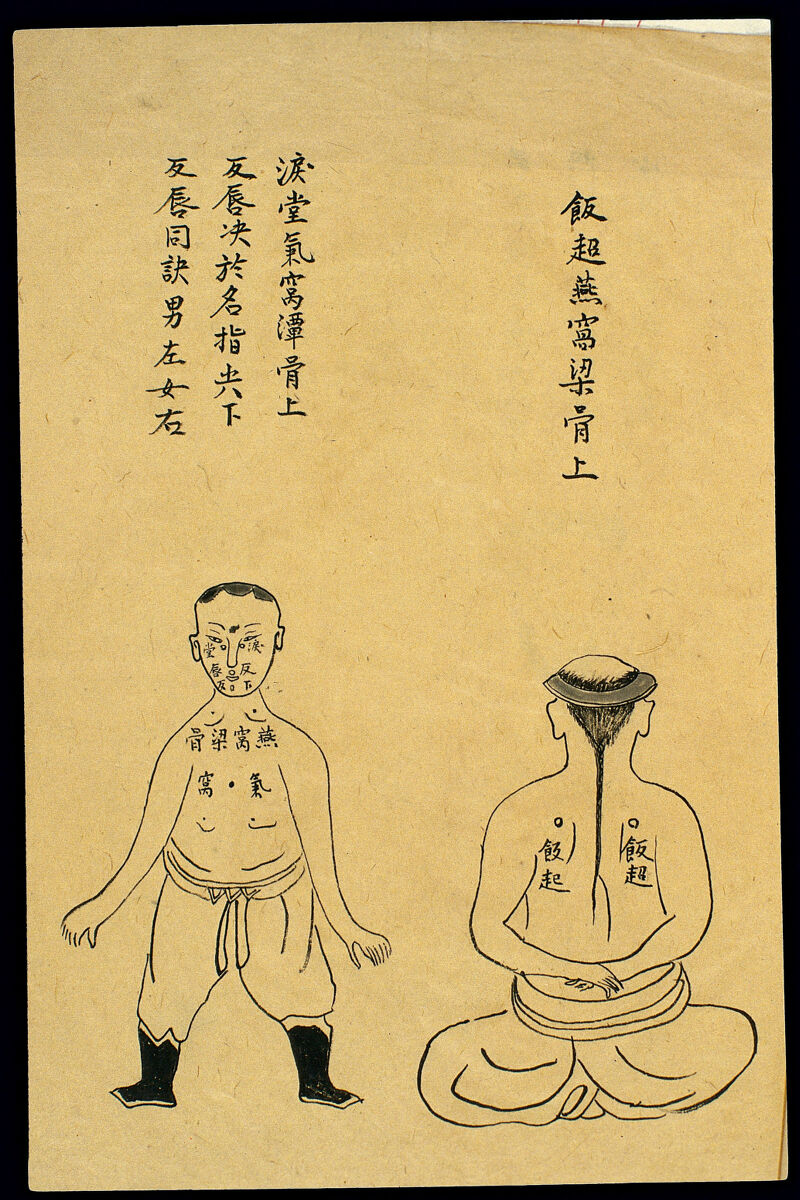 飯超燕窩梁骨上
淚堂氣窩潭骨上
反唇决於名指尖下
反唇同訣男左女右
淚
堂
反下
唇
反
燕窩梁骨
氣
窩
飯超
飯起